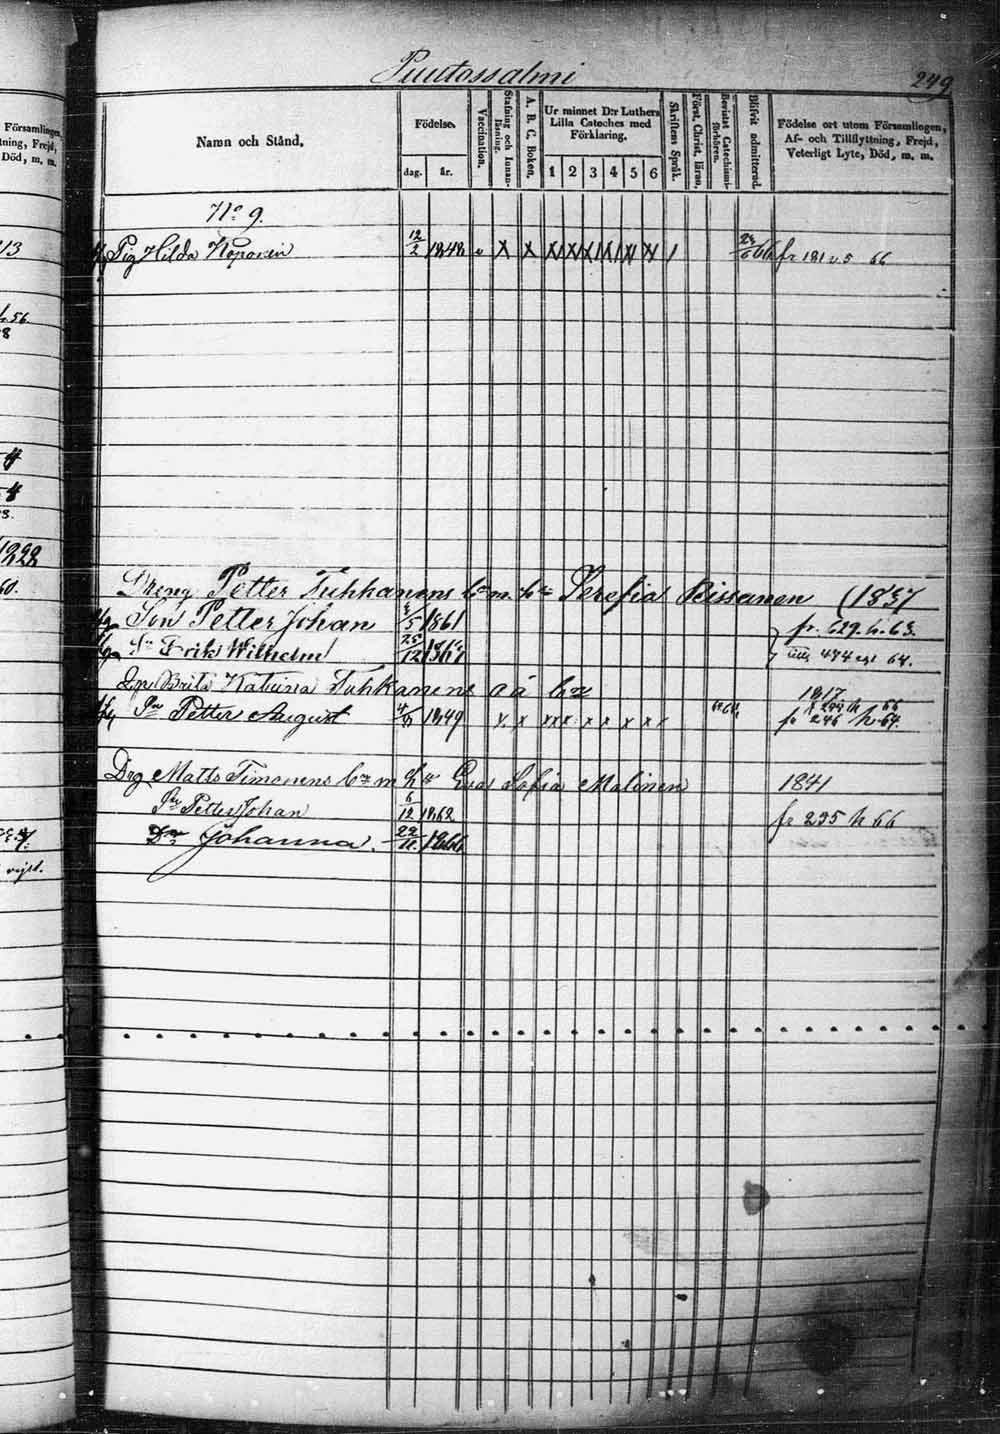 Puutossalmi
249
Namn och Stånd.
Födelse.
dag.
år.
Vaccination.
Stafning och Innan-läsning.
A. B. C. Boken.
Ur minnet D:r Luthers
Lilla Cateches med
Förklaring.
1 2 3 4 5 6
Skriftens Språk.
Först. Christ. läran.
Bevistat Catechismi-förhören.
Blifvit admitterad.
Födelse ort utom Församlingen,
Af- och Tillflyttning, Frejd,
Veterligt Lyte, Död, m. m.
No 9.
Pig Hilda Koponen 12/2 1848 v x x x x x x x x / 66 fr 181 v. 5 66
Dreng Petter Tuhkanens m. Serefia Reissanen (1837
Son Petter Johan 5 1861 fr. 629. h. 63.
Sn Erik Wilhelm 25/12 186 474 64.
Brita Katrina Tuhkanens o ä
1817
Sn Petter August 1849 x. x x x x x x x x fr 246 h. 64.
Drg Matts Timonens m Eva Sofia Malinen 1841
Sn Petter Johan 6/12 1862 fr 235 h 66
Dr Johanna. 22/11. 1866.
Församlingen,
tning, Frejd,
Död, m. m.
13
56.
8
4
3.
60.